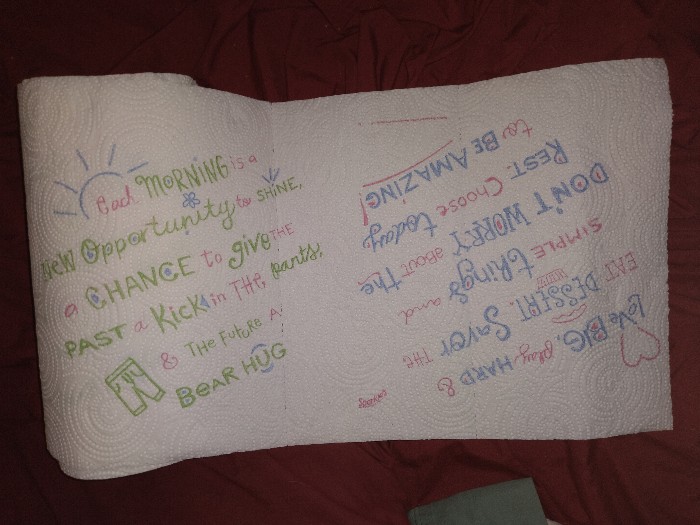 Each MORNING is a
NEW Opportunity to SHINE,
a CHANCE to give THE
PAST a Kick in THE pants,
& THE FUTURE A
BEAR HUG
Love BIG, play HARD &
EAT DESSERT. Savor THE
SIMPLE things and
DON'T WORRY ABOUT the
REST. Choose today
to BE AMAZING!